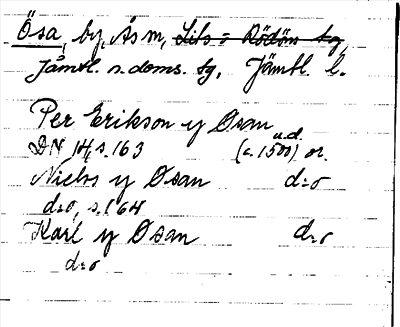 Ösa, by, Ås sn, Lits = Rödön tg,
Jämtl. n. doms. tg, Jämtl. l.
Per Erikson y Øsan
u.d.
DN 14, s. 163 (c. 1500) or.
Nielss y Øsan d:o
d:o, s. 164
Karl y Øsan d:o
d:o